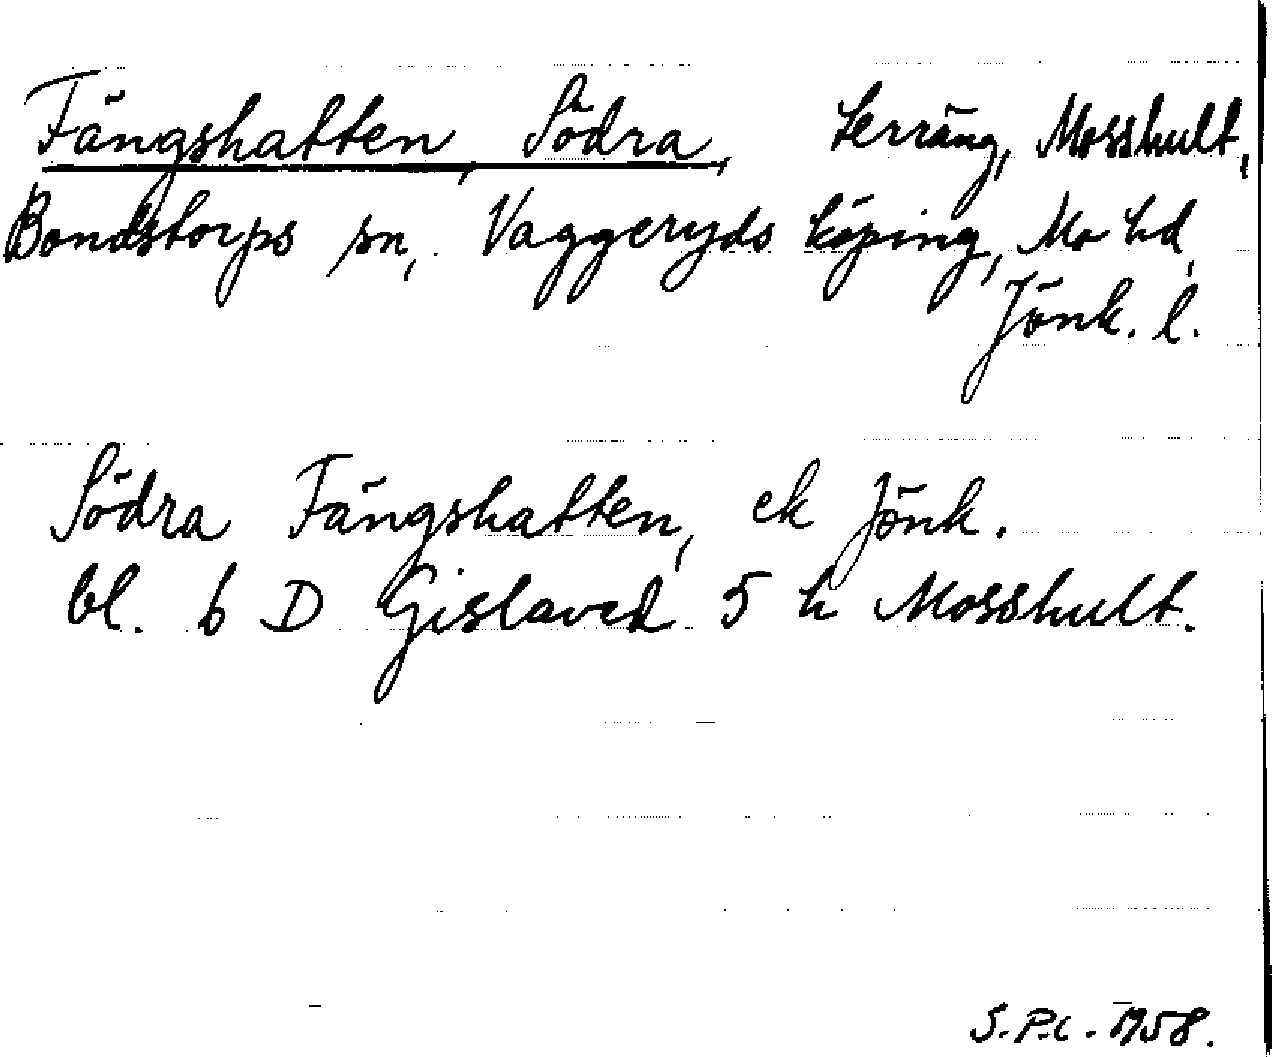 Fängshatten, Södra, terräng, Mosshult,
Bondstorps sn, Vaggeryds köping, Mo hd,
Jönk. l.
Södra Fängshatten, ek Jönk.
bl. 6 D Gislaved 5 h Mosshult.
S.P.L. 1958.